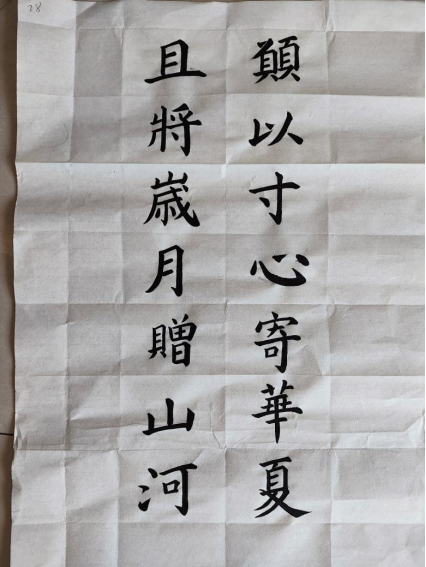 願以寸心寄華夏
且將歲月贈山河
28